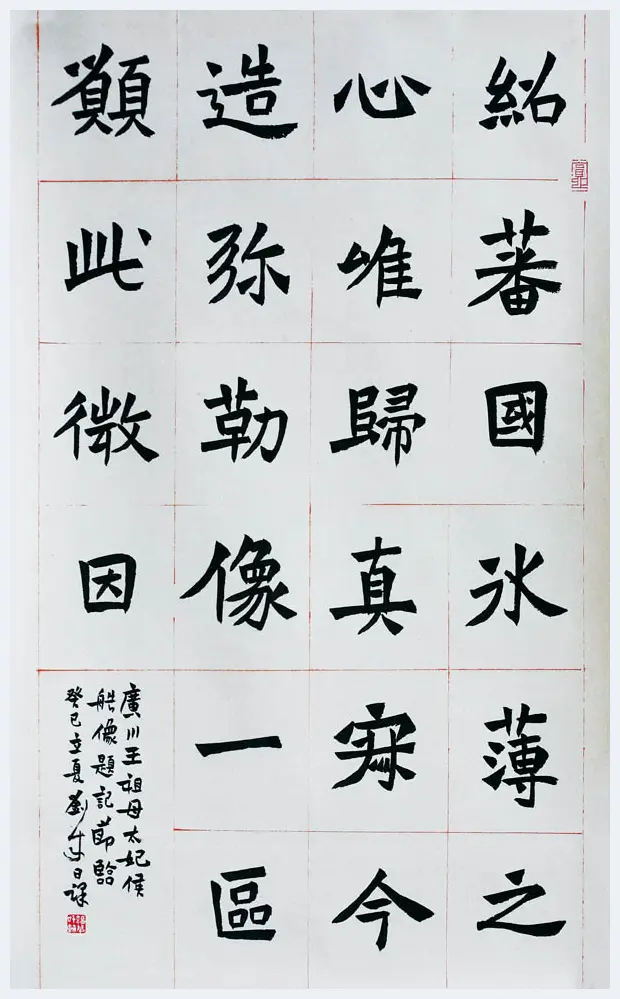 紹蕃國氷薄之
心唯歸真寂今
造弥勒像一區
願此微因
廣川王祖母太妃侯
艁像題記節臨
癸巳立夏劉日課